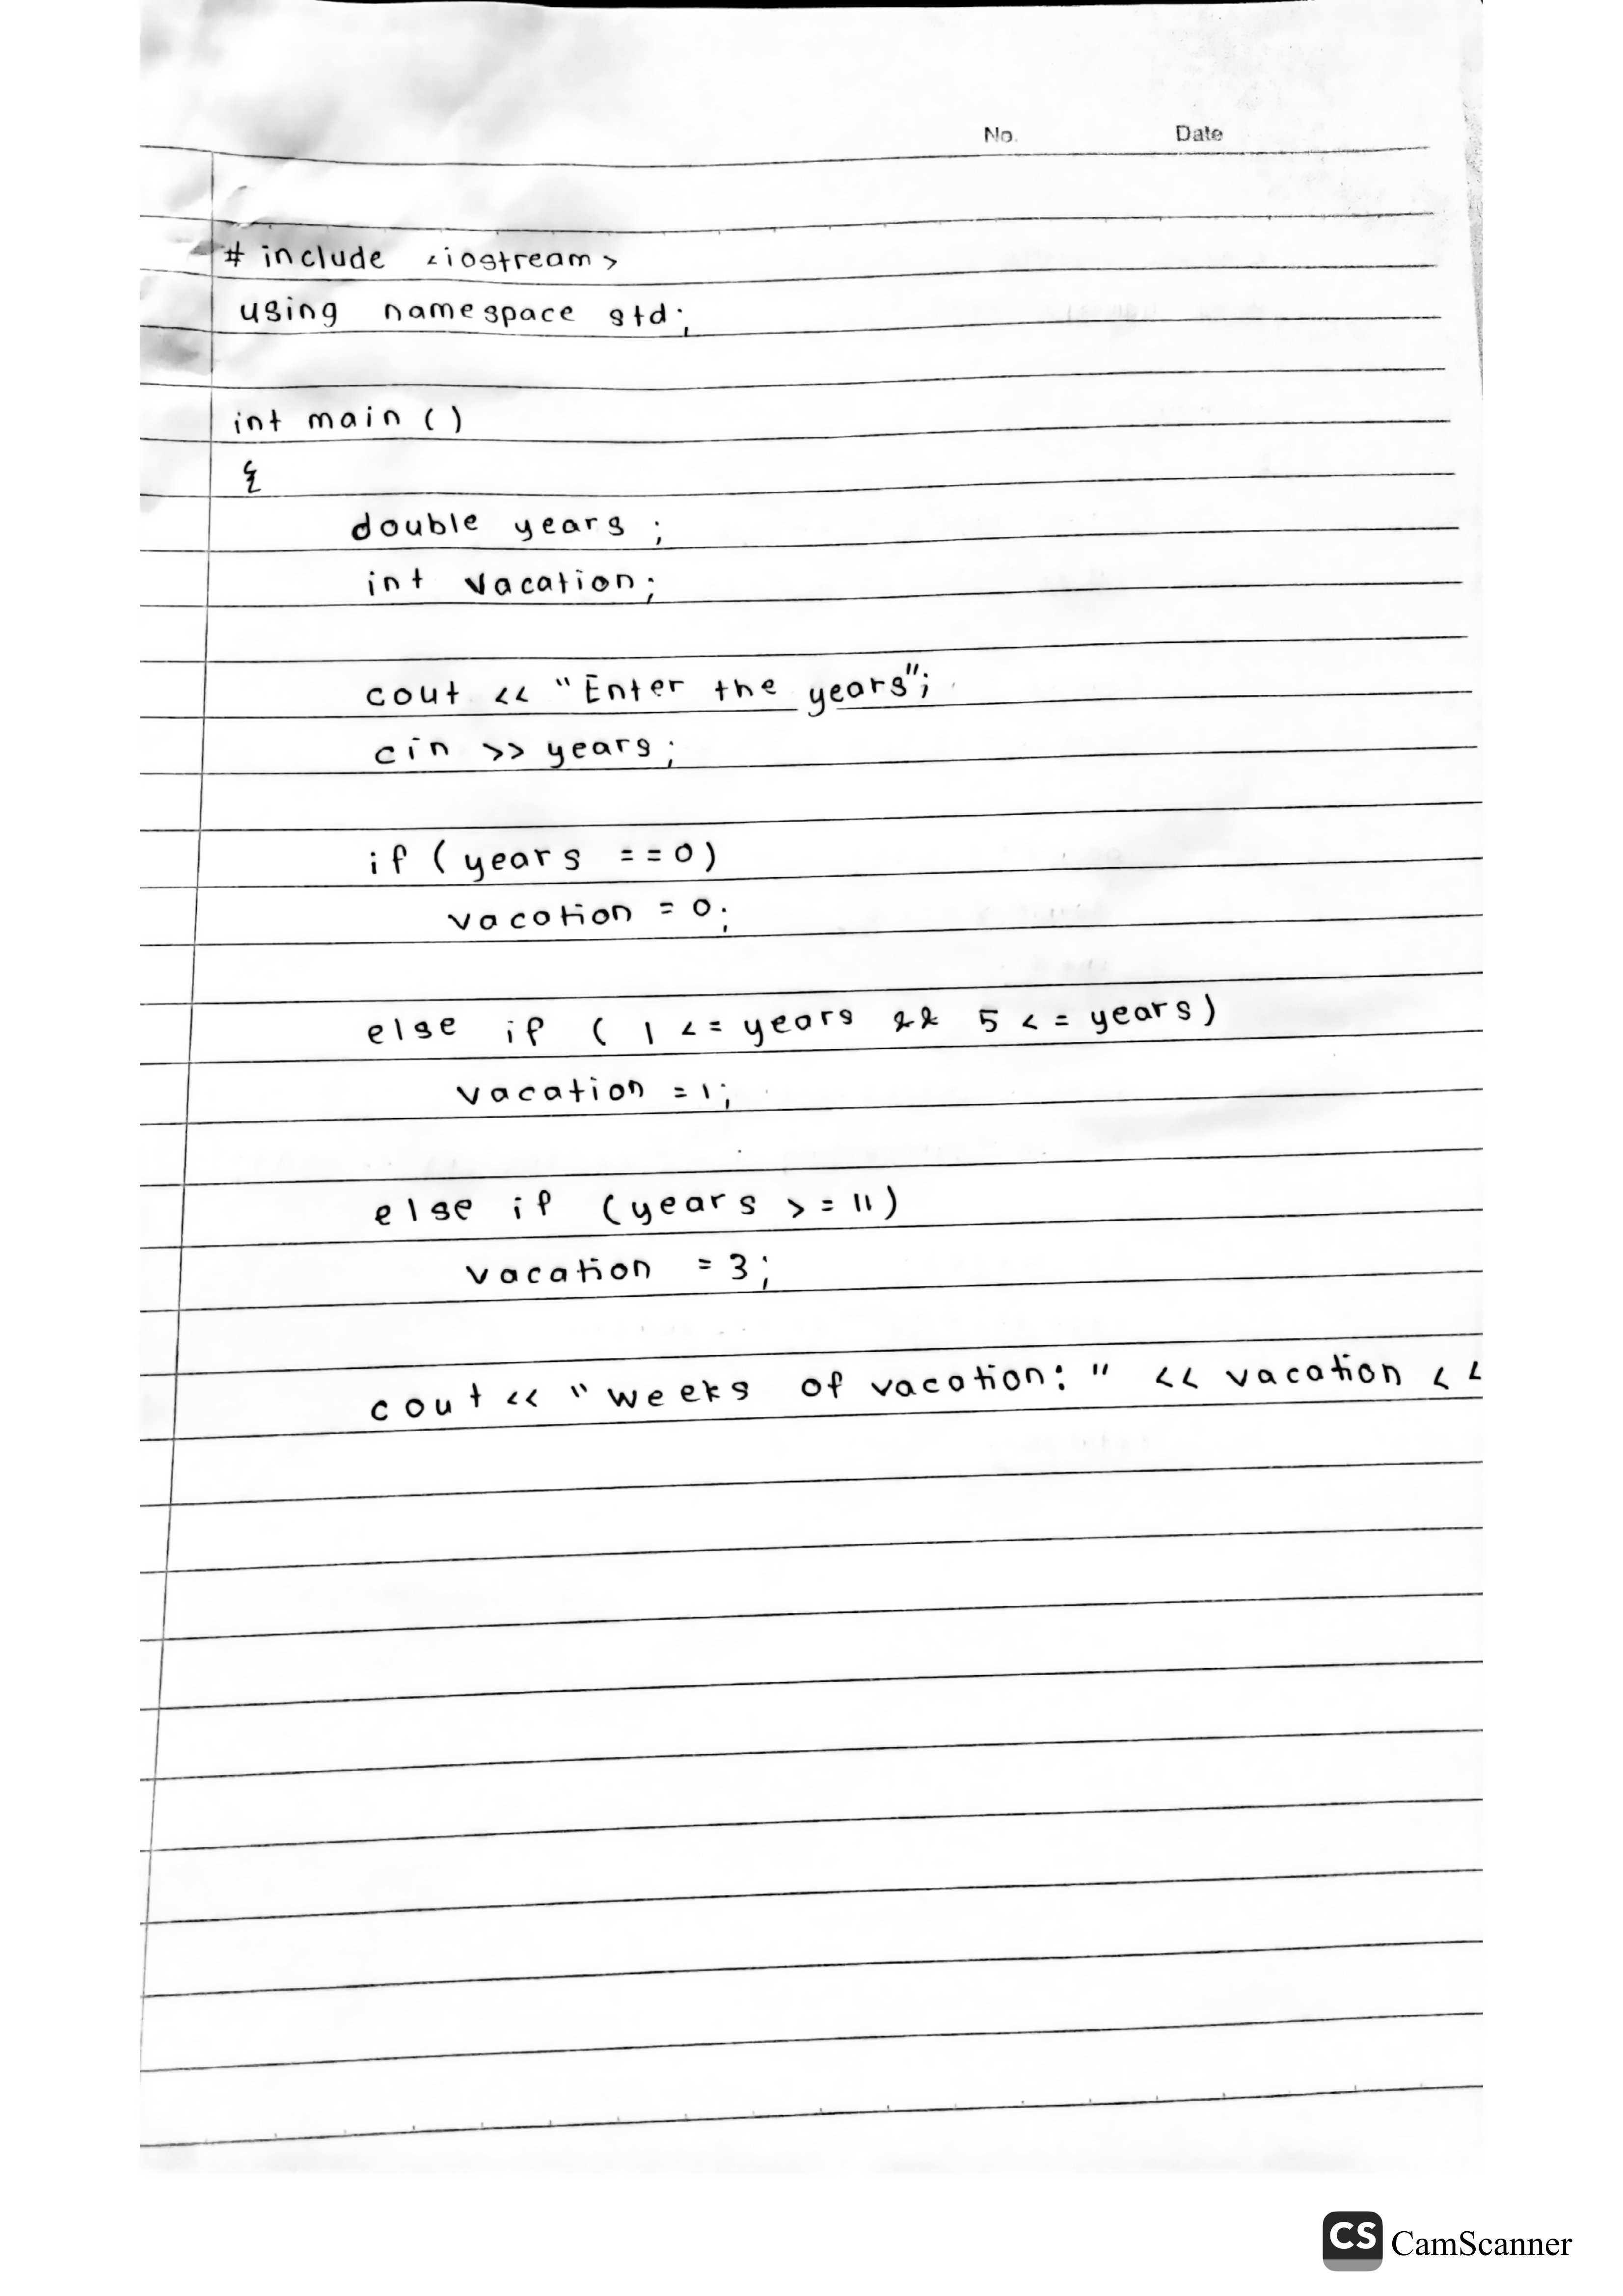 No. Date
# include <iostream>
using namespace std;
int main ()
{
double years ;
int vacation;
cout << "Enter the years";
cin >> years;
if ( years == 0)
vacation = 0;
else if ( 1 <= years && 5 <= years)
vacation = 1;
else if (years >= 11)
vacation = 3;
cout << "weeks of vacation: " << vacation <<
CS CamScanner